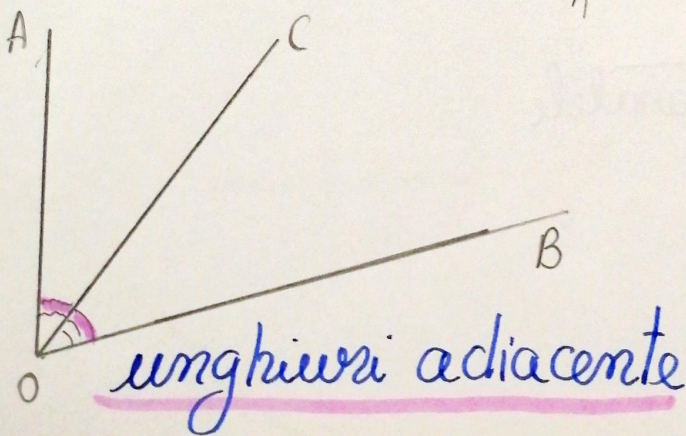 A
C
B
O
unghiuri adiacente